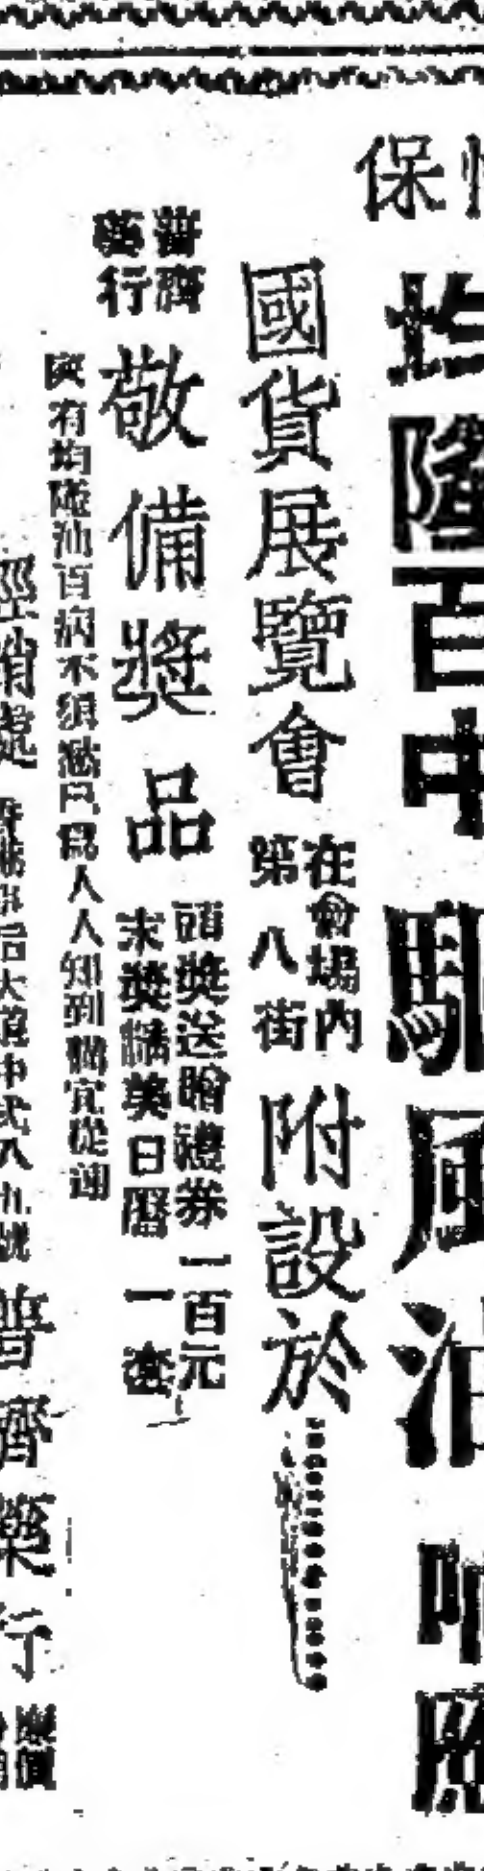 保
均隆百中驅風油
國貨展覽會
在會場內
第八街
附設於
普濟
藥行
敬備獎品
頭獎送贈禮券一百元
末獎精美日曆一套
家有均隆油百病不須愁只為人人知到購宜從速
經銷處
大道中
普濟藥行